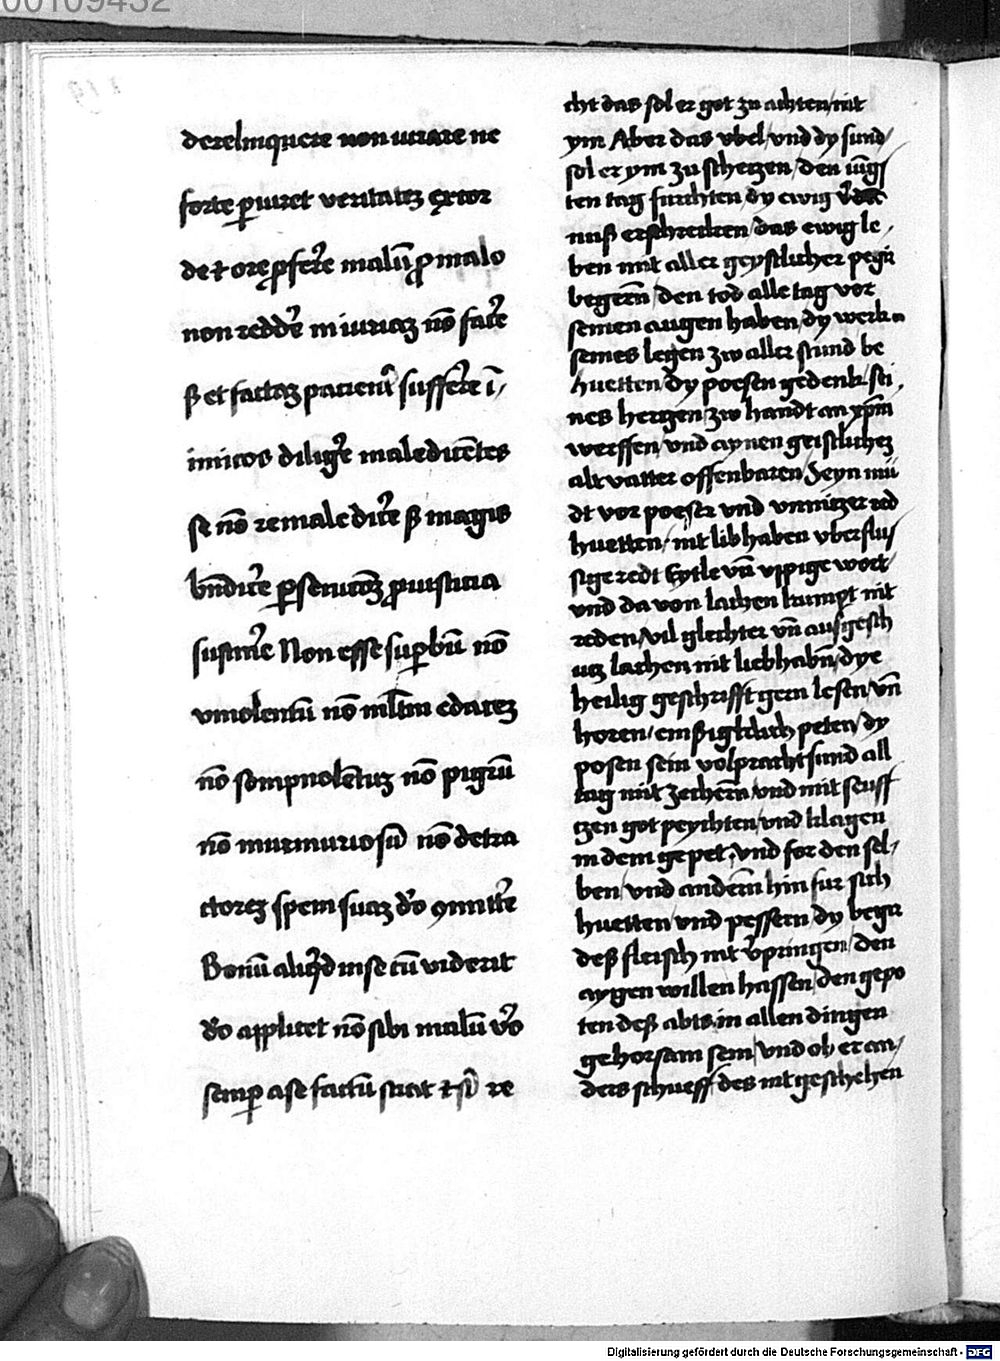 00109432
derelinquere non iurare ne
forte ꝑiuret veritateꝫ ex cor
de ⁊ ore ꝓferre malū ꝓ malo
non reddere iniuriaꝫ nō facere
sꝫ et factaꝫ pacienter sufferre i
imicos diligere maledicētes
se nō remaledicere sꝫ magis
bn̄dicere ꝑsecucōeꝫ ꝓ iusticia
sustinere Non esse suꝑbū nō
vinolentū nō mltm edaceꝫ
nō sompnolētuꝫ nō pigrū
nō murmuriosū nō detra
ctoreꝫ spem suaꝫ deo ꝯmittere
Bonū aliqd in se cū viderit
deo applicet nō sibi malū vero
semꝑ a se factū sciat ⁊ sibi re
cht das sol er got zu achten nit
ym Aber das vbel vnd dy sund
sol er ym zu schetzen / den iūgs
ten tag furchten dy ewig vdā
nuß erschrecken / das ewig le
ben mit aller geystlicher pegir
begern / den tod alle tag vor
seinen augen haben / dy werk
seines legen zw aller stund be
huetten / dy poesen gedenk sei
nes hertzen zw handt an xpm
werffen / vnd aynen geistlichez
altvatter offenbaren / Seyn mū
dt vor poeser vnd vnnützer red
huetten / nit lib haben vberflus
sige redt Eytle vn̄ vppige wort
vnd da von lachen kumpt nit
reden / vil glechter vn̄ ausgesch
utz lachen nit liebhabn̄ / dye
heilig geschrifft gern lesen / vn̄
horen / emßigklich peten / dy
posen sein volpracht sund all
tag mit zechern vnd mit seuff
tzen got peychten / vnd klagen
in dem gepet / vnd for den sel
ben / vnd andern hin fur sich
huetten vnd pessern / dy begir
deß fleisch nit vpringen / den
aygen willen hassen / den gepo
ten deß abts in allen dingen
gehorsam sein / vnd ob er an
ders schueff des nit geschehen
Digitalisierung gefördert durch die Deutsche Forschungsgemeinschaft - DFG